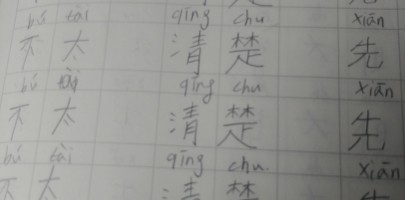 bú tài qīng chu xiān
不太 清楚 先
bú tài qīng chu xiān
不太 清楚 先
bú tài qīng chu. xiān
不太 清楚